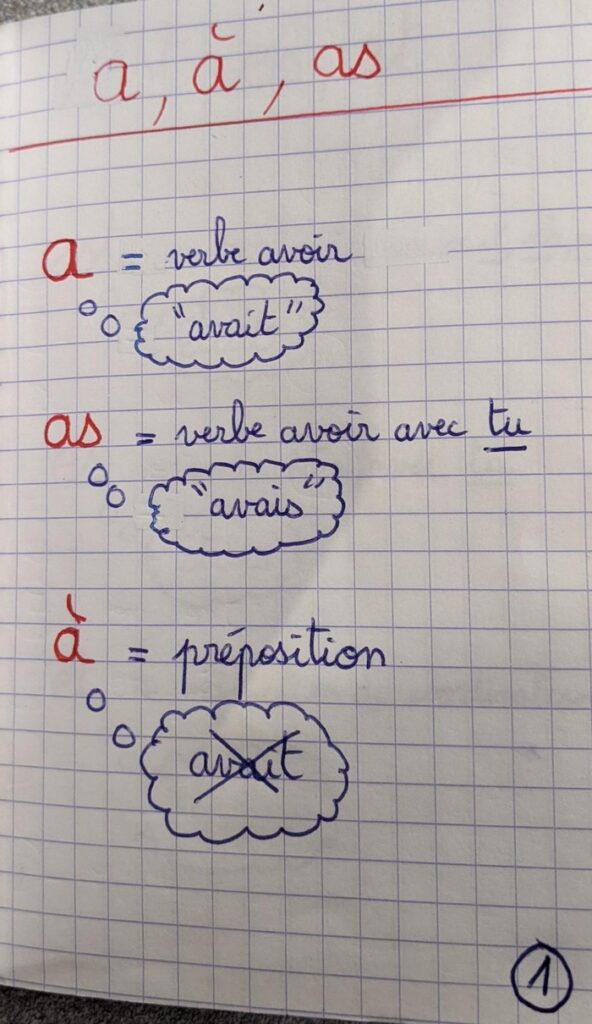 a, à, as
a = verbe avoir
"avait"
as = verbe avoir avec tu
"avais"
à = préposition
avait
1